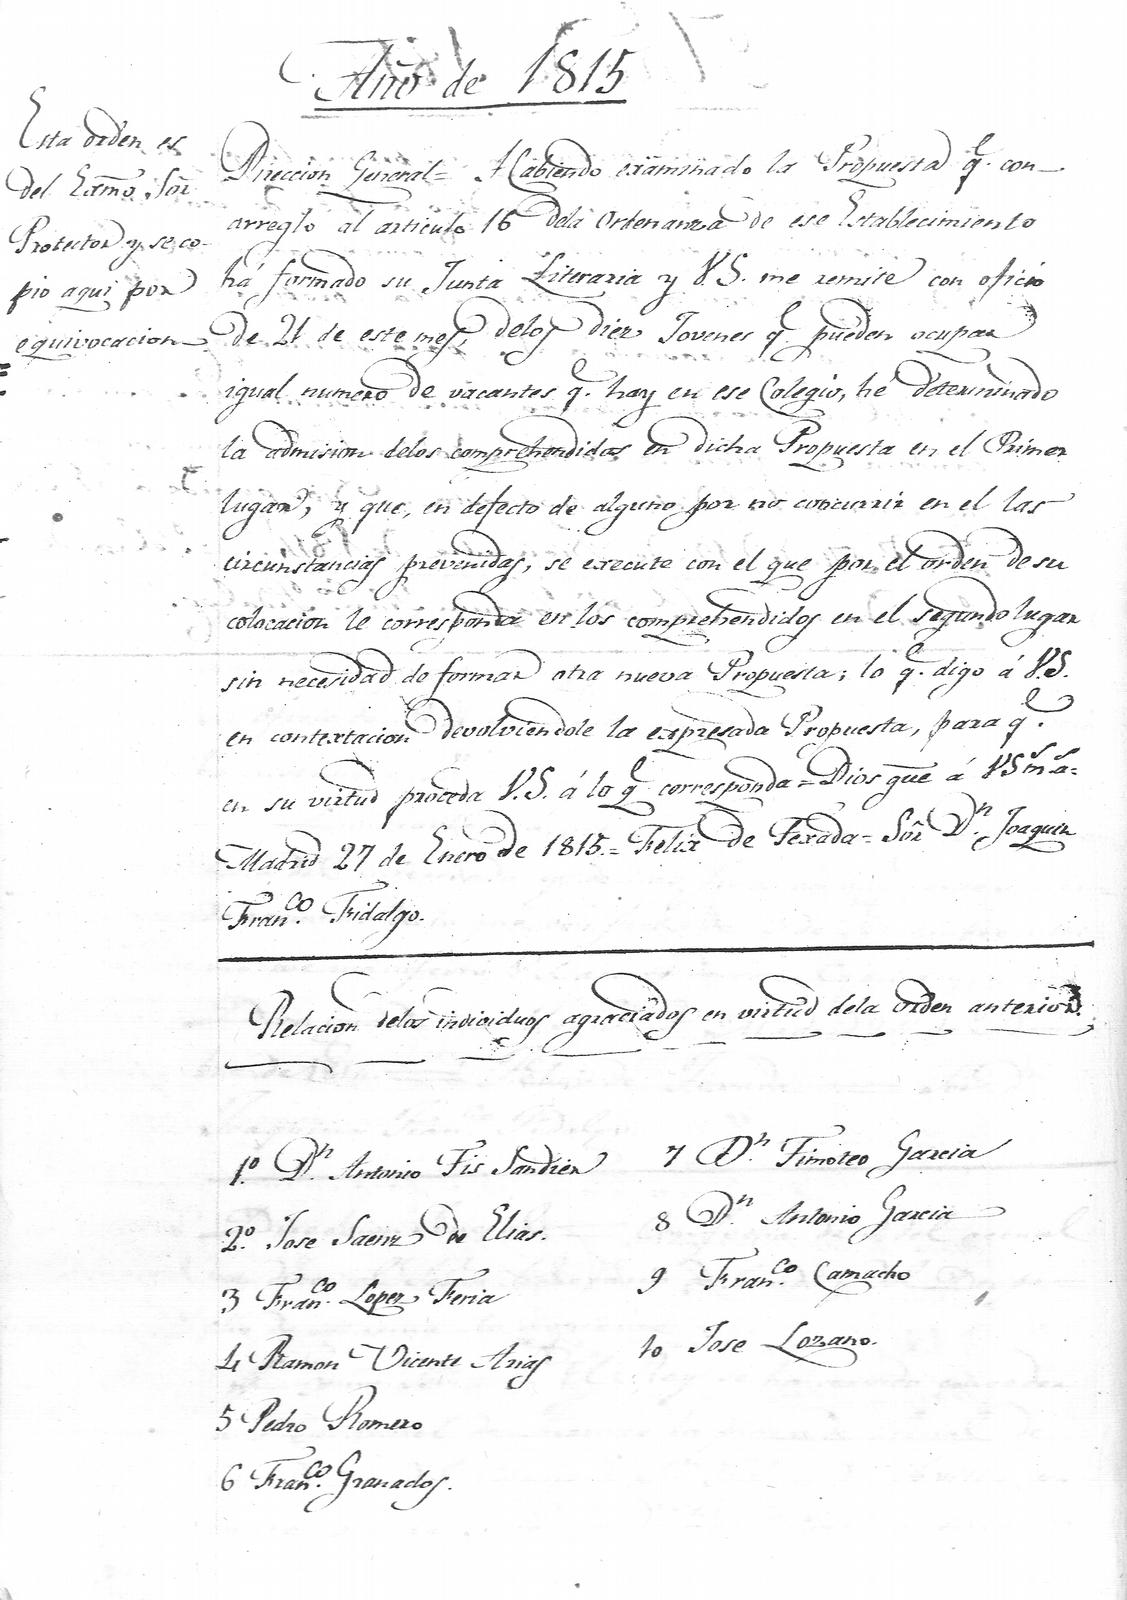 Año de 1815
Esta orden es
del Exmo. Sor
Protector y se co-
pio aqui por
equivocacion
Direccion General= Habiendo examinado la Propuesta q. con
arreglo al articulo 16 dela Ordenanza de ese Establecimiento
há formado su Junta Literaria y V.S. me remite con oficio
de 21 de este mes, delos diez Jovenes q. pueden ocupar
igual numero de vacantes q. hay en ese Colegio, hé determinado
la admision delos comprehendidos en dicha Propuesta en el Primer
lugar; y que, en defecto de alguno por no concurrir en el las
circunstancias prevenidas, se execute con el que por el orden de su
colocacion le corresponda en los comprehendidos en el segundo lugar
sin necesidad de formar otra nueva Propuesta; lo q. digo á V.S.
en contextacion devolviendole la expresada Propuesta, para q.
en su virtud proceda V.S. á lo q. corresponda = Dios gue á VS ms as=
Madrid 27 de Enero de 1815.= Felix de Texada= Sôr Dn. Joaquin
Franco. Fidalgo.
Relacion delos individuos agraciados en virtud dela orden anterior.
1º. Dn. Antonio Fis Sandier
2º. Jose Saenz de Elias.
3 Franco. Lopez Feria
4 Ramon Vicente Arias
5 Pedro Romero
6 Franco. Granados.
7 Dn. Timoteo Garcia
8 Dn. Antonio Garcia
9 Franco. Camacho
10 Jose Lozano.